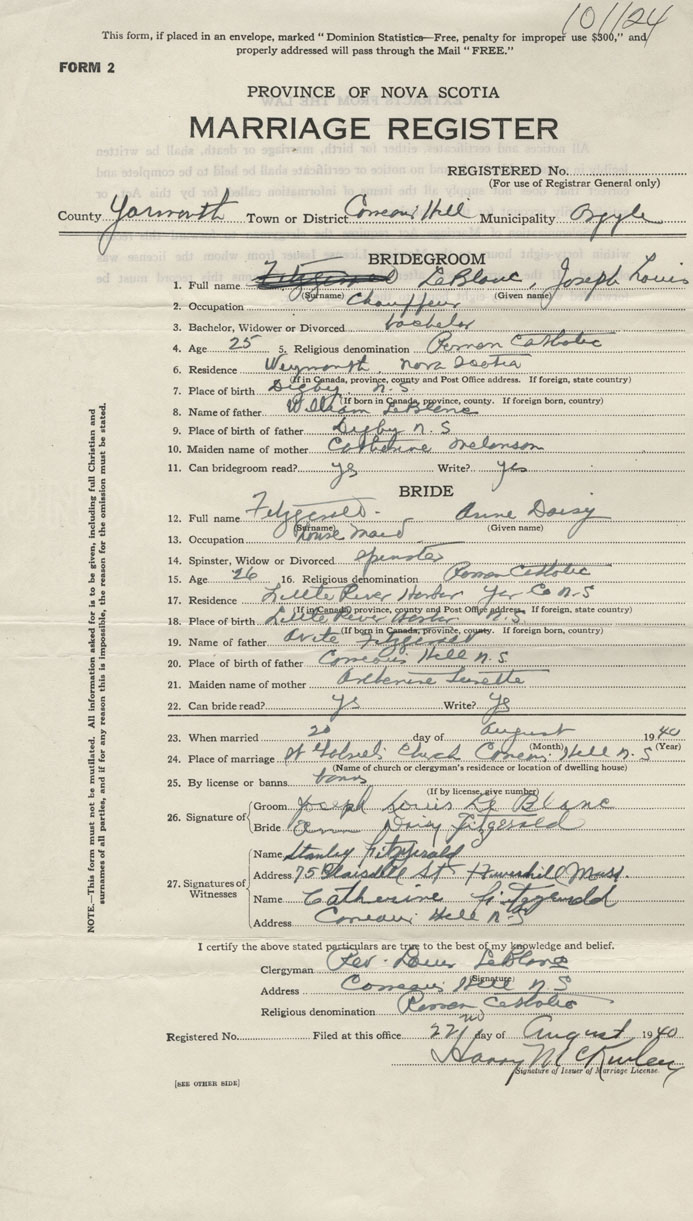 101124
This form, if placed in an envelope, marked "Dominion Statistics—Free, penalty for improper use $300," and
properly addressed will pass through the Mail "FREE."
FORM 2
PROVINCE OF NOVA SCOTIA
MARRIAGE REGISTER
REGISTERED No.
(For use of Registrar General only)
County Yarmouth Town or District Comeau's Hill Municipality Argyle
BRIDEGROOM
1. Full name Fitzgerald LeBlanc, Joseph Louis
(Surname) (Given name)
2. Occupation Chauffeur
3. Bachelor, Widower or Divorced bachelor
4. Age 25 5. Religious denomination Roman Catholic
6. Residence Weymouth, Nova Scotia
(If in Canada, province, county and Post Office address. If foreign, state country)
7. Place of birth Digby N.S.
(If born in Canada, province, county. If foreign born, country)
8. Name of father William LeBlanc
9. Place of birth of father Digby N.S
10. Maiden name of mother Catherine Melanson
11. Can bridegroom read? yes Write? yes
BRIDE
12. Full name Fitzgerald Anne Daisy
(Surname) (Given name)
13. Occupation House Maid
14. Spinster, Widow or Divorced spinster
15. Age 26 16. Religious denomination Roman Catholic
17. Residence Little River Harbor Yar Co N.S
(If in Canada, province, county and Post Office address. If foreign, state country)
18. Place of birth Little River Harbor N.S
(If born in Canada, province, county. If foreign born, country)
19. Name of father Fitzgerald
20. Place of birth of father Comeau's Hill N.S
21. Maiden name of mother Surette
22. Can bride read? yes Write? yes
23. When married 20 day of August 1940
(Month) (Year)
24. Place of marriage St Gabriel's Church Comeaus Hill N.S
(Name of church or clergyman's residence or location of dwelling house)
25. By license or banns banns
(If by license, give number)
26. Signature of Groom Joseph Louis Le Blanc
Bride Ann Daisy Fitzgerald
27. Signatures of Witnesses
Name Stanley Fitzgerald
Address 75 Blaisdell St Haverhill Mass.
Name Catherine Fitzgerald
Address Comeaus Hill N.S
I certify the above stated particulars are true to the best of my knowledge and belief.
Clergyman Rev. Louis LeBlanc
(Signature)
Address Comeaus Hill N.S
Religious denomination Roman Catholic
Registered No. Filed at this office 22nd day of August 1940
Harry McKinley
Signature of Issuer of Marriage License.
[SEE OTHER SIDE]
NOTE.—This form must not be mutilated. All information asked for is to be given, including full Christian and
surnames of all parties, and if for any reason this is impossible, the reason for the omission must be stated.